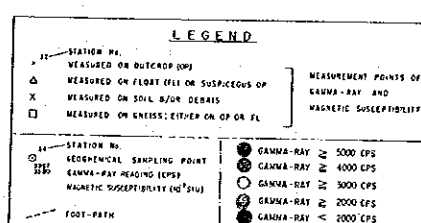 LEGEND
STATION No.
MEASURED ON OUTCROP (OP)
MEASURED ON FLOAT (FL) OR SUSPICEOUS OP
X MEASURED ON SOIL &/OR DEBRIS
MEASURED ON GNEISS; EITHER ON OP OR FL
MEASUREMENT POINTS OF
GAMMA-RAY AND
MAGNETIC SUSCEPTIBILITY
STATION No.
GEOCHEMICAL SAMPLING POINT
GAMMA-RAY READING (CPS)
MAGNETIC SUSCEPTIBILITY
FOOT-PATH
GAMMA-RAY ≥ 5000 CPS
GAMMA-RAY ≥ 4000 CPS
GAMMA-RAY ≥ 3000 CPS
GAMMA-RAY ≥ 2000 CPS
GAMMA-RAY < 2000 CPS